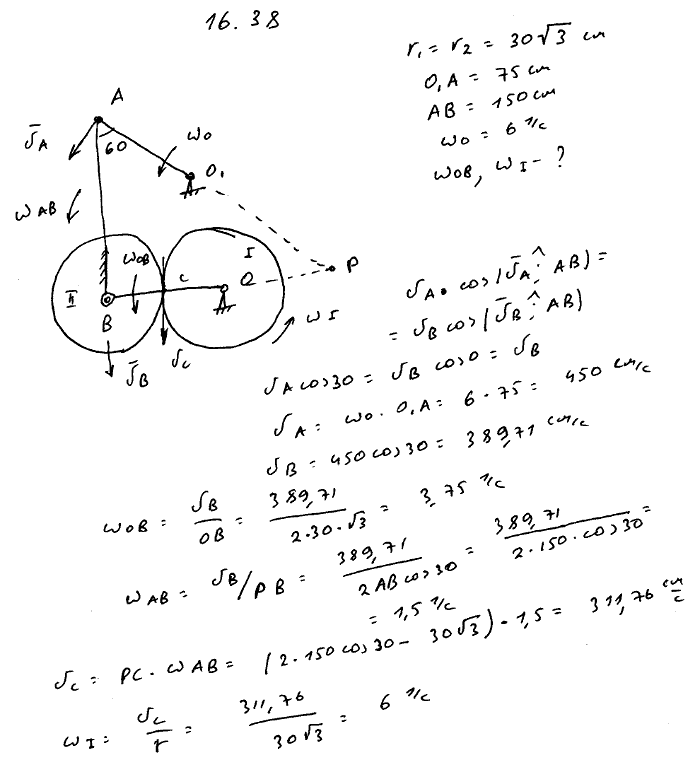 16.38
r₁ = r₂ = 30√3 см
O₁A = 75 см
AB = 150 см
ω₀ = 6 1/c
ωOB, ωI - ?
A
v̄A
60
ω₀
O₁
ωAB
I
ωOB
C
O
P
II
B
ωI
v̄B
vC
vA · cos(v̄A ^; AB) =
= vB cos(v̄B ^; AB)
vA cos30 = vB cos0 = vB
vA = ω₀ · O₁A = 6 · 75 = 450 см/с
vB = 450 cos30 = 389,71 см/с
ωOB = vB/OB = 389,71/(2·30·√3) = 3,75 1/c
ωAB = vB/PB = 389,71/(2AB cos30) = 389,71/(2·150·cos30) =
= 1,5 1/c
vC = PC · ωAB = (2·150 cos30 - 30√3) · 1,5 = 311,76 см/с
ωI = vC/r = 311,76/(30√3) = 6 1/c